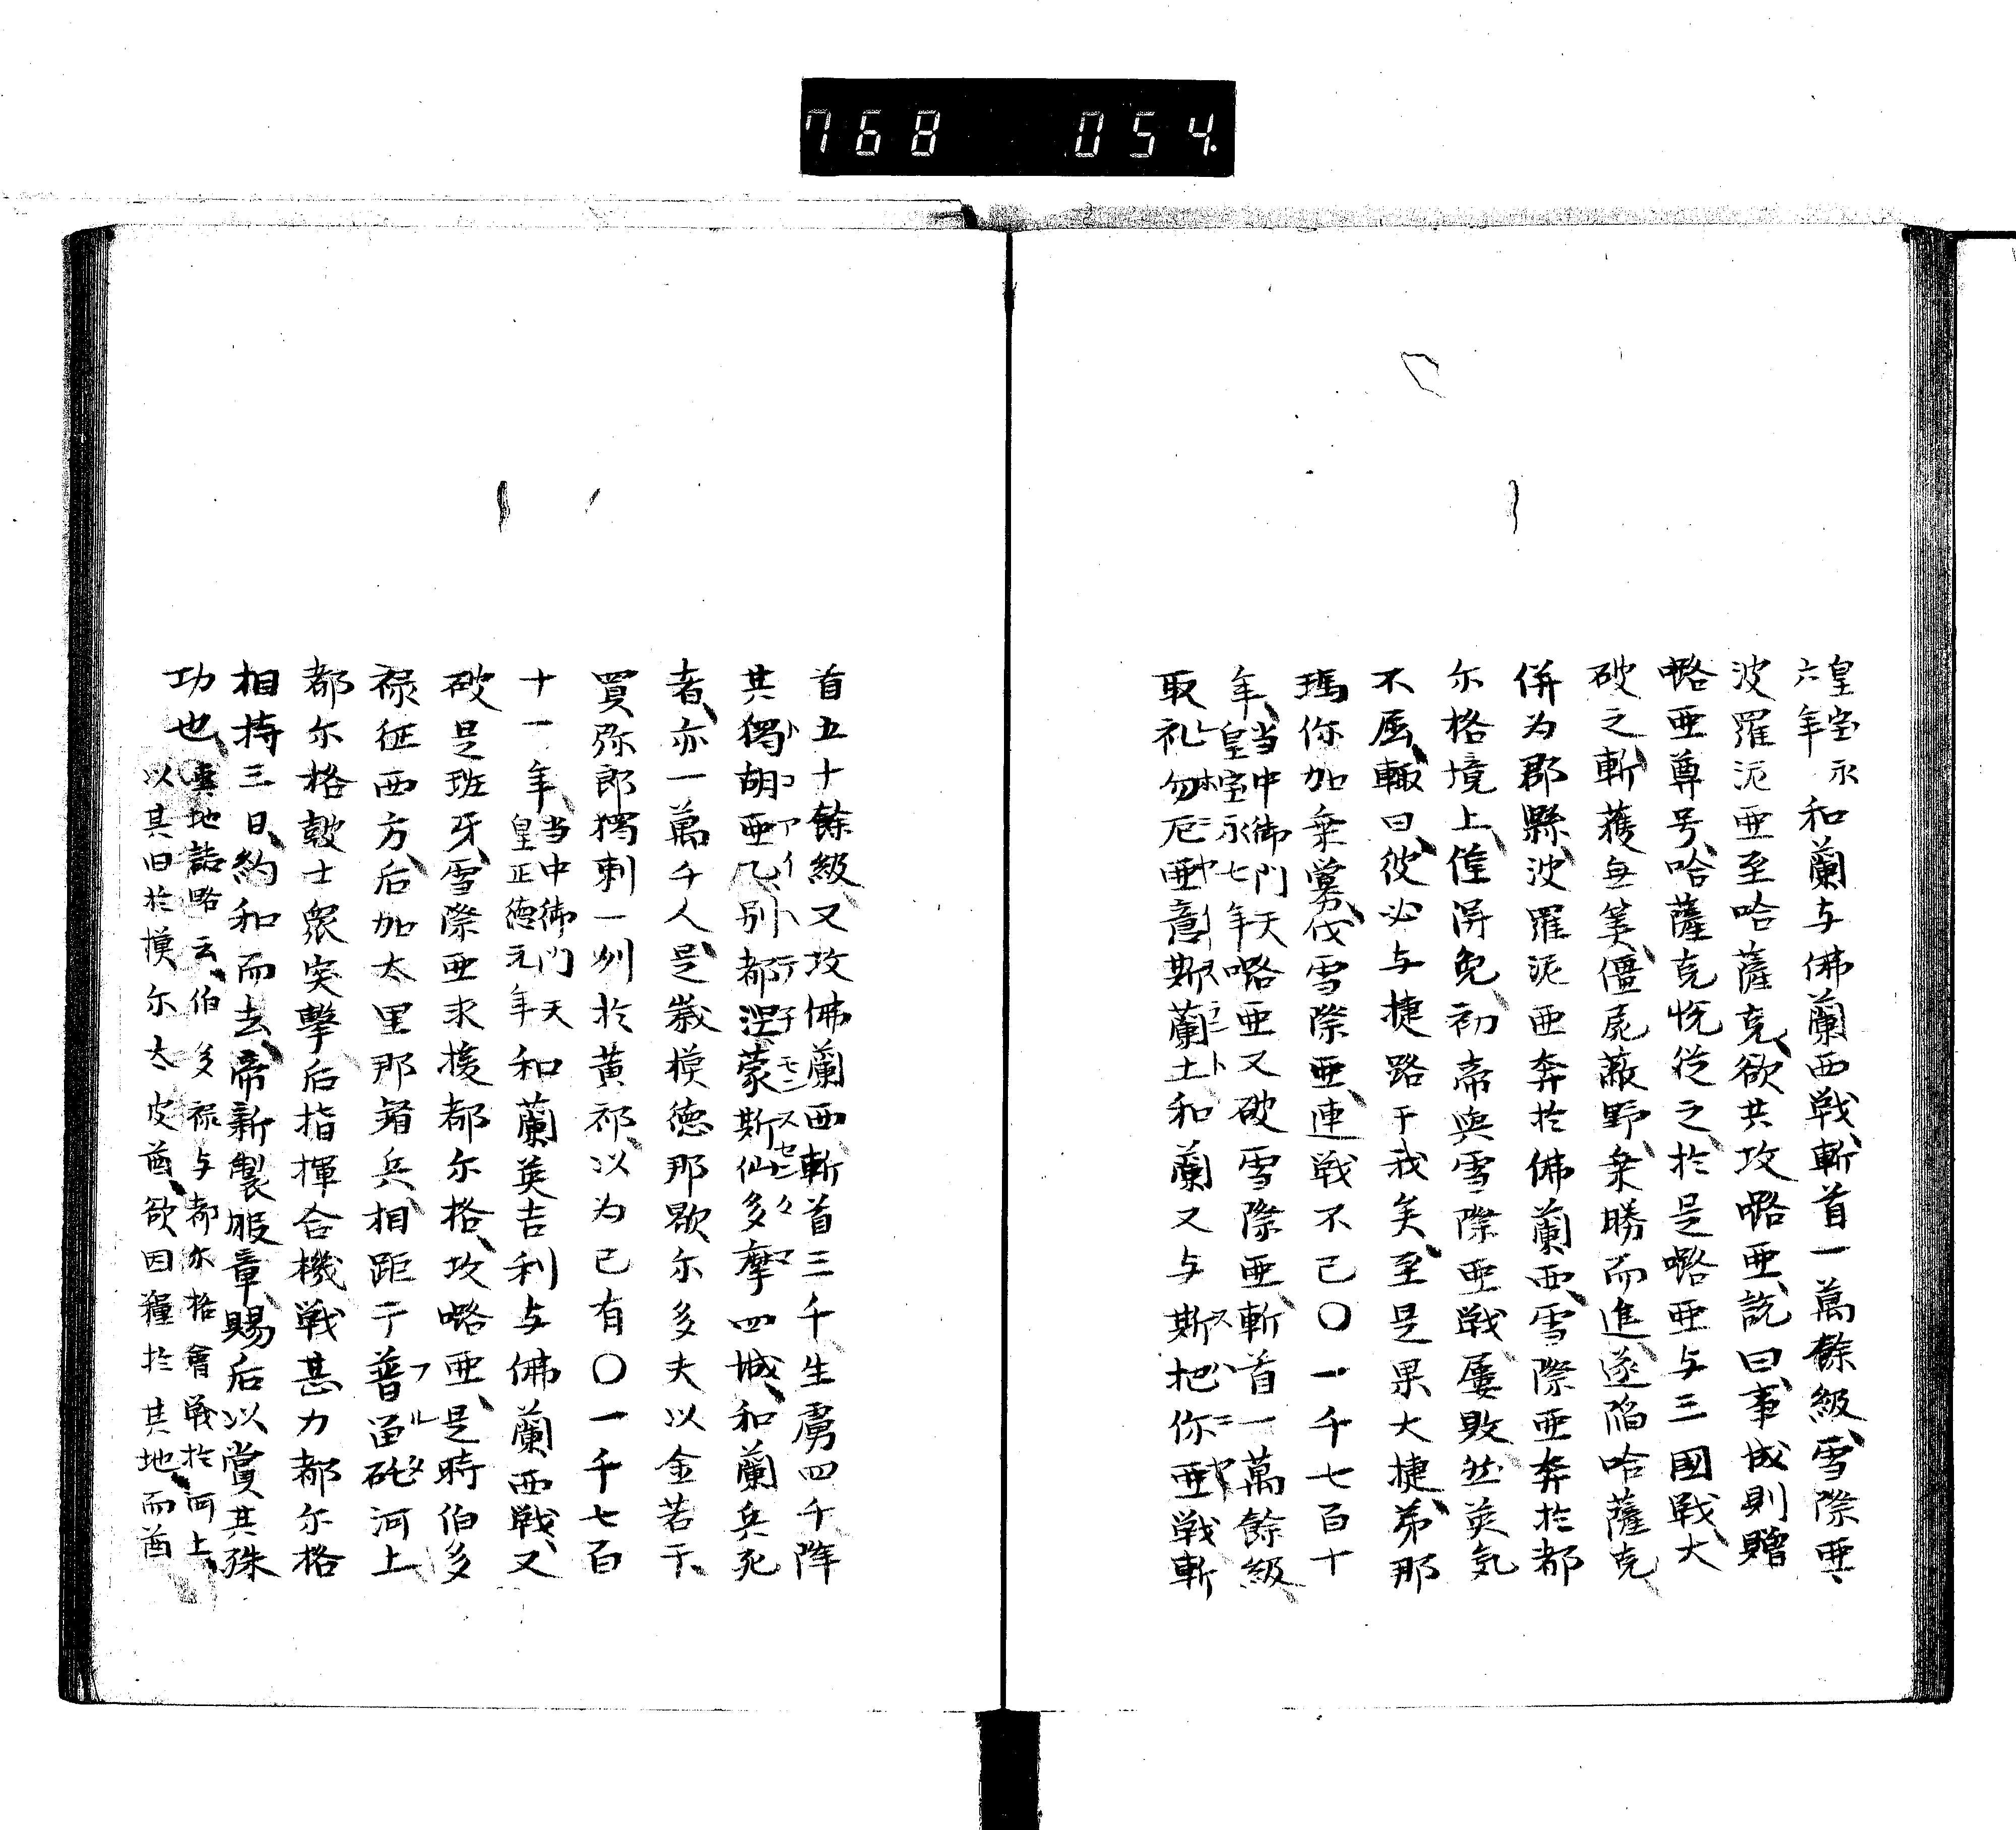 768 054.
皇宝永
六年 和蘭与佛蘭西戦、斬首一萬餘級、雪際亜、
波羅泥亜至哈薩克、欲共攻略亜、説曰、事成則贈
略亜尊号、哈薩克悦從之、於是略亜与三國戦、大
破之、斬獲無筭、僵屍蔽野、乗勝而進、遂陥哈薩克
併為郡縣、波羅泥亜奔於佛蘭西、雪際亜奔於都
尓格境上、僅得免、初帝與雪際亜戦屢敗、然英気
不屈、輙曰、彼必与捷路于我矣、至是果大捷、弟那
瑪你加乗嘗伐雪際亜、連戦不已〇一千七百十
年、当中御門天
皇宝永七年 略亜又破雪際亜、斬首一萬餘級
取礼勿泥亜意斯蘭土和蘭又与斯把你亜戦斬
首五十餘級、又攻佛蘭西斬首三千生虜四千降
其獨胡亜乙別都涅蒙斯仙多摩四城、和蘭兵死
者、亦一萬千人、是歳模德那歇尓多夫以金若干、
買弥郎獨刺一州於黄祁、以为已有〇一千七百
十一年、当中御門天
皇正德元年 和蘭英吉利与佛蘭西戦、又
破是班牙、雪際亜求援都尓格、攻略亜、是時伯多
禄征西方、后加太里那督兵、相距于普留砒河上
都尓格鼓士衆突撃后指揮合機戦甚力都尓格
相持三日、約和而去、帝新製服章、賜后以賞其殊
功也、
地誌略云、伯多禄与都尓格會戦於河上、
以其旧於模尓太皮酋、欲因糧於其地、而酋